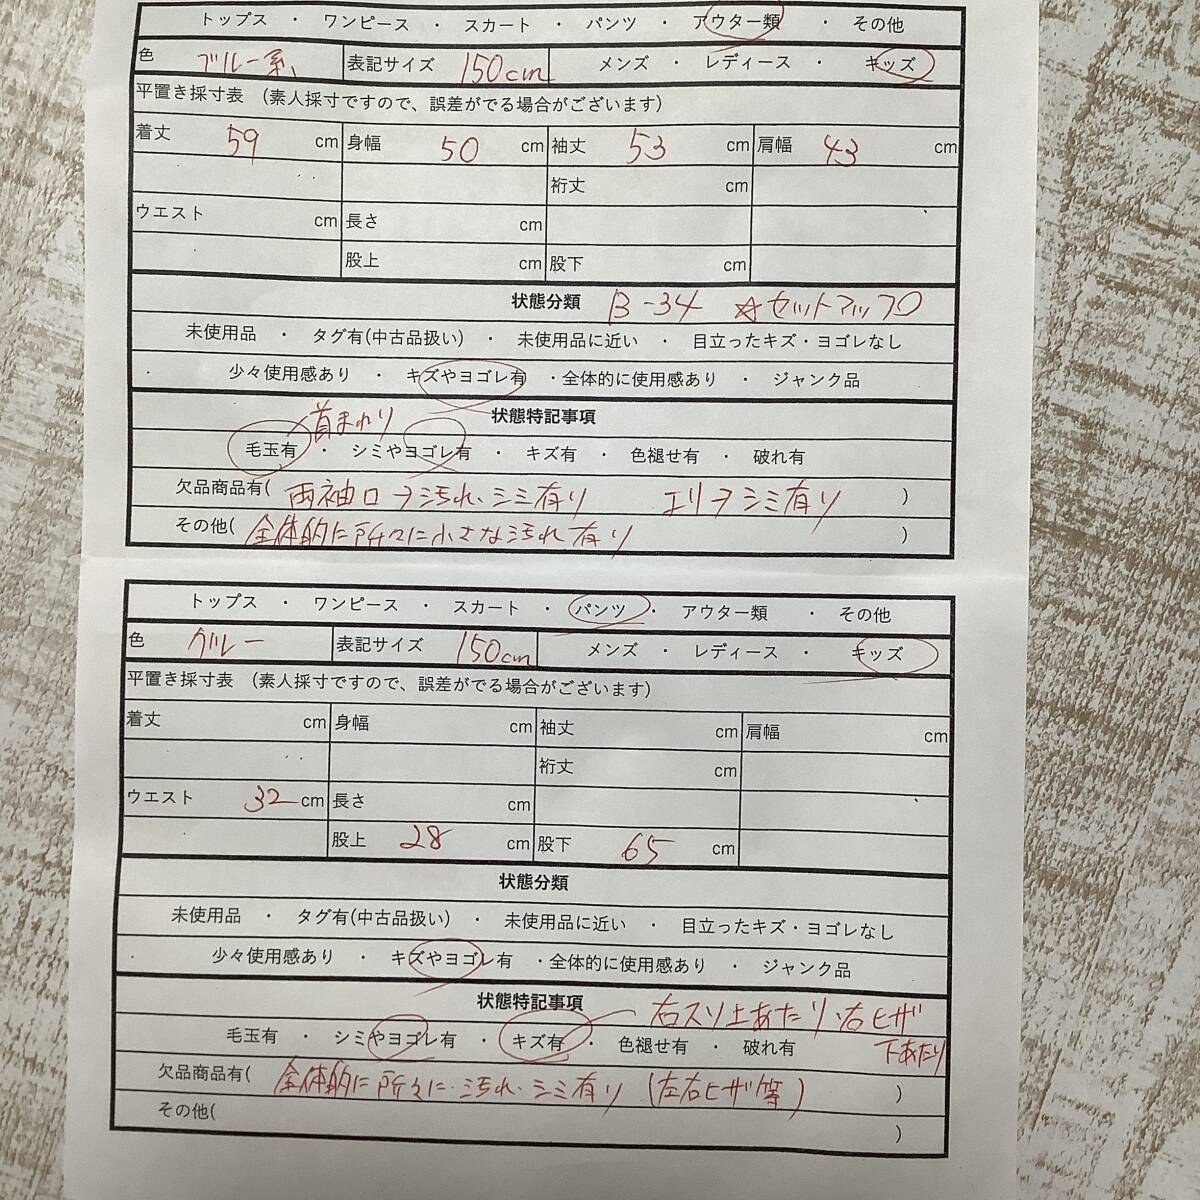 トップス ・ ワンピース ・ スカート ・ パンツ ・ アウター類 ・ その他
色 ブルー系 表記サイズ 150cm メンズ ・ レディース ・ キッズ
平置き採寸表 (素人採寸ですので、誤差がでる場合がございます)
着丈 59 cm 身幅 50 cm 袖丈 53 cm 肩幅 43 cm
裄丈 cm
ウエスト cm 長さ cm
股上 cm 股下 cm
状態分類 B-34 ☆セットアップ
未使用品 ・ タグ有(中古品扱い) ・ 未使用品に近い ・ 目立ったキズ・ヨゴレなし
少々使用感あり ・ キズやヨゴレ有 ・全体的に使用感あり ・ ジャンク品
首まわり 状態特記事項
毛玉有 ・ シミやヨゴレ有 ・ キズ有 ・ 色褪せ有 ・ 破れ有
欠品商品有( 両袖口→汚れ、シミ有り エリ→シミ有り )
その他( 全体的に所々に小さな汚れ有り )
トップス ・ ワンピース ・ スカート ・ パンツ ・ アウター類 ・ その他
色 グレー 表記サイズ 150cm メンズ ・ レディース ・ キッズ
平置き採寸表 (素人採寸ですので、誤差がでる場合がございます)
着丈 cm 身幅 cm 袖丈 cm 肩幅 cm
裄丈 cm
ウエスト 32 cm 長さ cm
股上 28 cm 股下 65 cm
状態分類
未使用品 ・ タグ有(中古品扱い) ・ 未使用品に近い ・ 目立ったキズ・ヨゴレなし
少々使用感あり ・ キズやヨゴレ有 ・全体的に使用感あり ・ ジャンク品
状態特記事項 右スソ上あたり、右ヒザ
毛玉有 ・ シミやヨゴレ有 ・ キズ有 ・ 色褪せ有 ・ 破れ有 下あたり
欠品商品有( 全体的に所々に汚れ、シミ有り (左右ヒザ等) )
その他( )